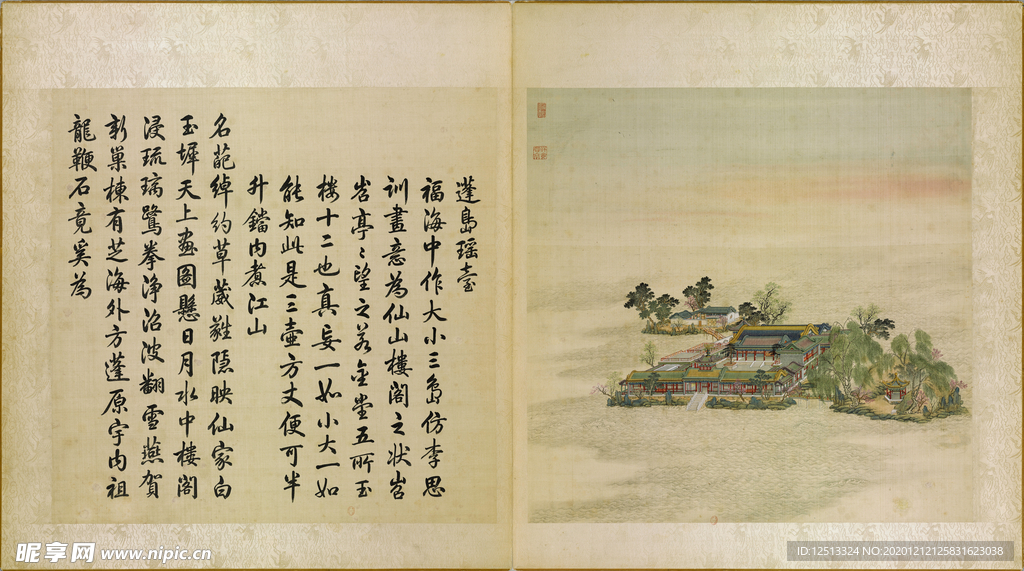 蓬島瑶臺
福海中作大小三島仿李思
訓畫意為仙山樓閣之狀岧
岧亭〻望之若金堂五所玉
樓十二也真妄一如小大一如
能知此是三壺方丈便可半
升鐺内煮江山
名葩綽約草葳蕤隱映仙家白
玉墀天上畫圖懸日月水中樓閣
浸琉璃鷺拳淨沼波翻雪燕賀
新巢棟有芝海外方蓬原宇内祖
龍鞭石竟奚為
昵享网 www.nipic.cn
ID:12513324 NO:20201212125831623038